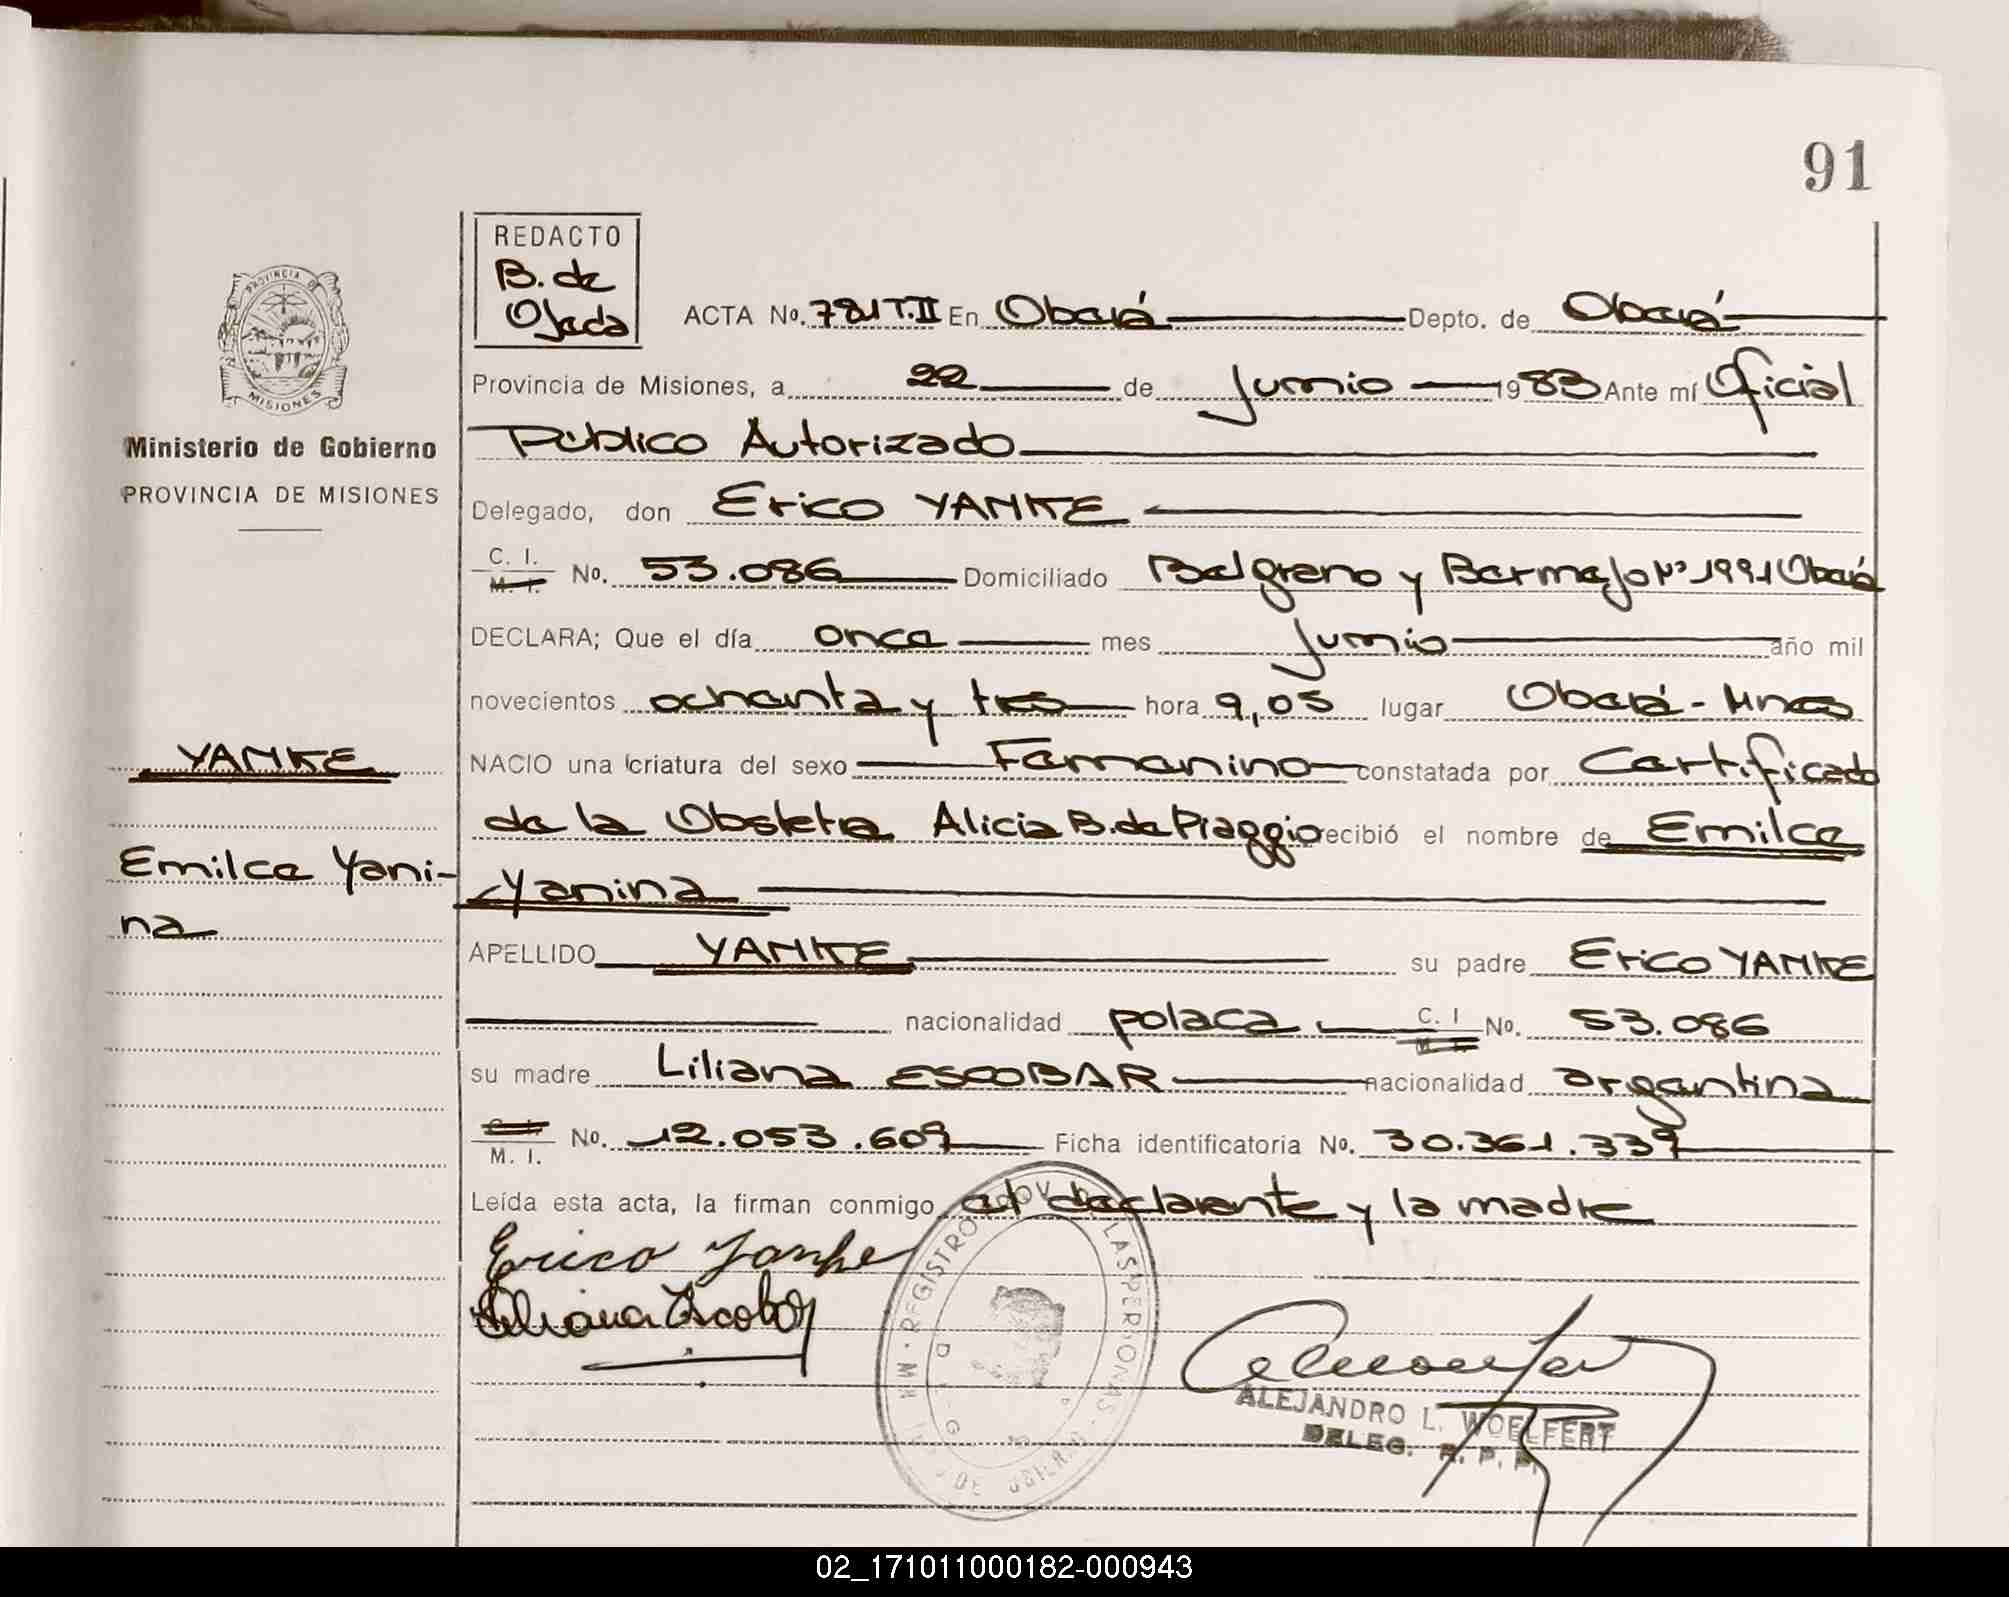 91
REDACTO
B. de
Ojeda
ACTA No. 781 T.II En Oberá Depto. de Oberá
PROVINCIA DE
MISIONES
Provincia de Misiones, a 22 de Junio 1983 Ante mí Oficial
Ministerio de Gobierno
Público Autorizado
PROVINCIA DE MISIONES
Delegado, don Erico YANKE
C. I. M. I. No. 53.086 Domiciliado Belgrano y Bermejo Nº 1991 Oberá
DECLARA; Que el día once mes Junio año mil
novecientos ochenta y tres hora 9,05 lugar Oberá - Mnes
YANKE
NACIO una criatura del sexo Femenino constatada por Certificado
de la Obstetra Alicia B. de Piaggio recibió el nombre de Emilce
Emilce Yani-
Yanina
na
APELLIDO YANKE su padre Erico YANKE
nacionalidad polaca C. I M. I. No. 53.086
su madre Liliana ESCOBAR nacionalidad argentina
C. I. M. I. No. 12.053.609 Ficha identificatoria No. 30.361.339
Leída esta acta, la firman conmigo el declarante y la madre
Erico Yanke
Liliana Escobar
REGISTRO PROV. DE LAS PERSONAS
ALEJANDRO L. WOELFERT
DELEG. R. P. P.
02_171011000182-000943